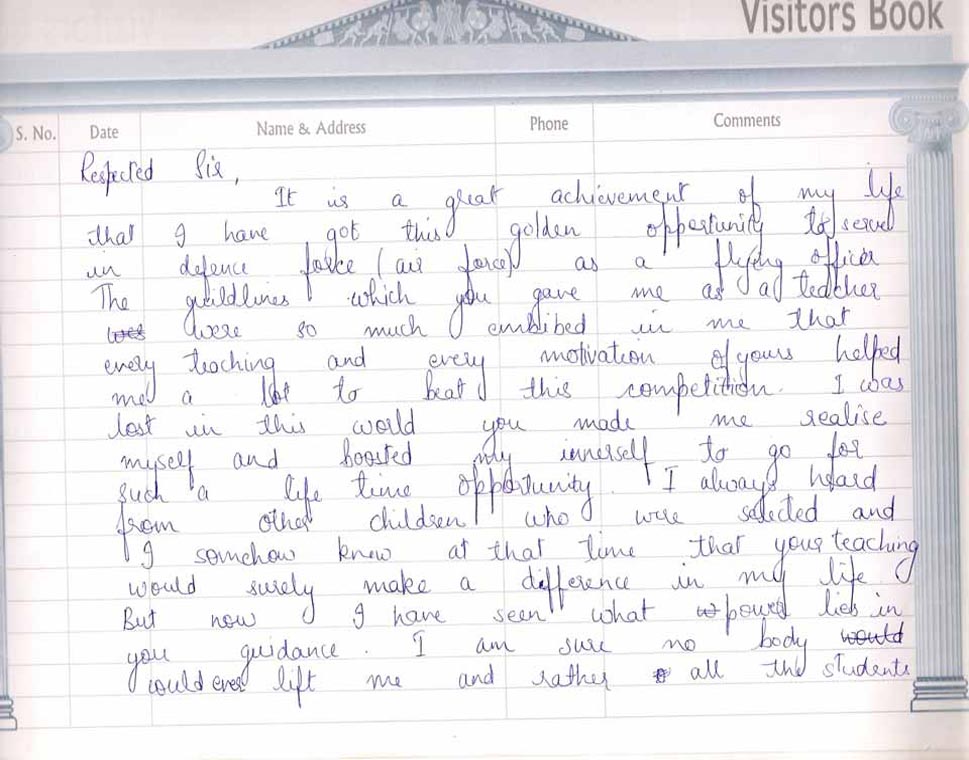 Visitors Book
S. No. Date Name & Address Phone Comments
Respected Sir,
It is a great achievement of my life
that I have got this golden opportunity to serve
in defence force (air force) as a flying officer
The guildlines which you gave me as a teacher
were so much embibed in me that
every teaching and every motivation of yours helped
me a lot to beat this competition. I was
lost in this world you made me realise
myself and boosted my innerself to go for
such a life time opportunity. I always heard
from other children who were selected and
I somehow knew at that time that your teaching
would surely make a difference in my life.
But now I have seen what power lies in
you guidance. I am sure no body would
could ever lift me and rather all the students